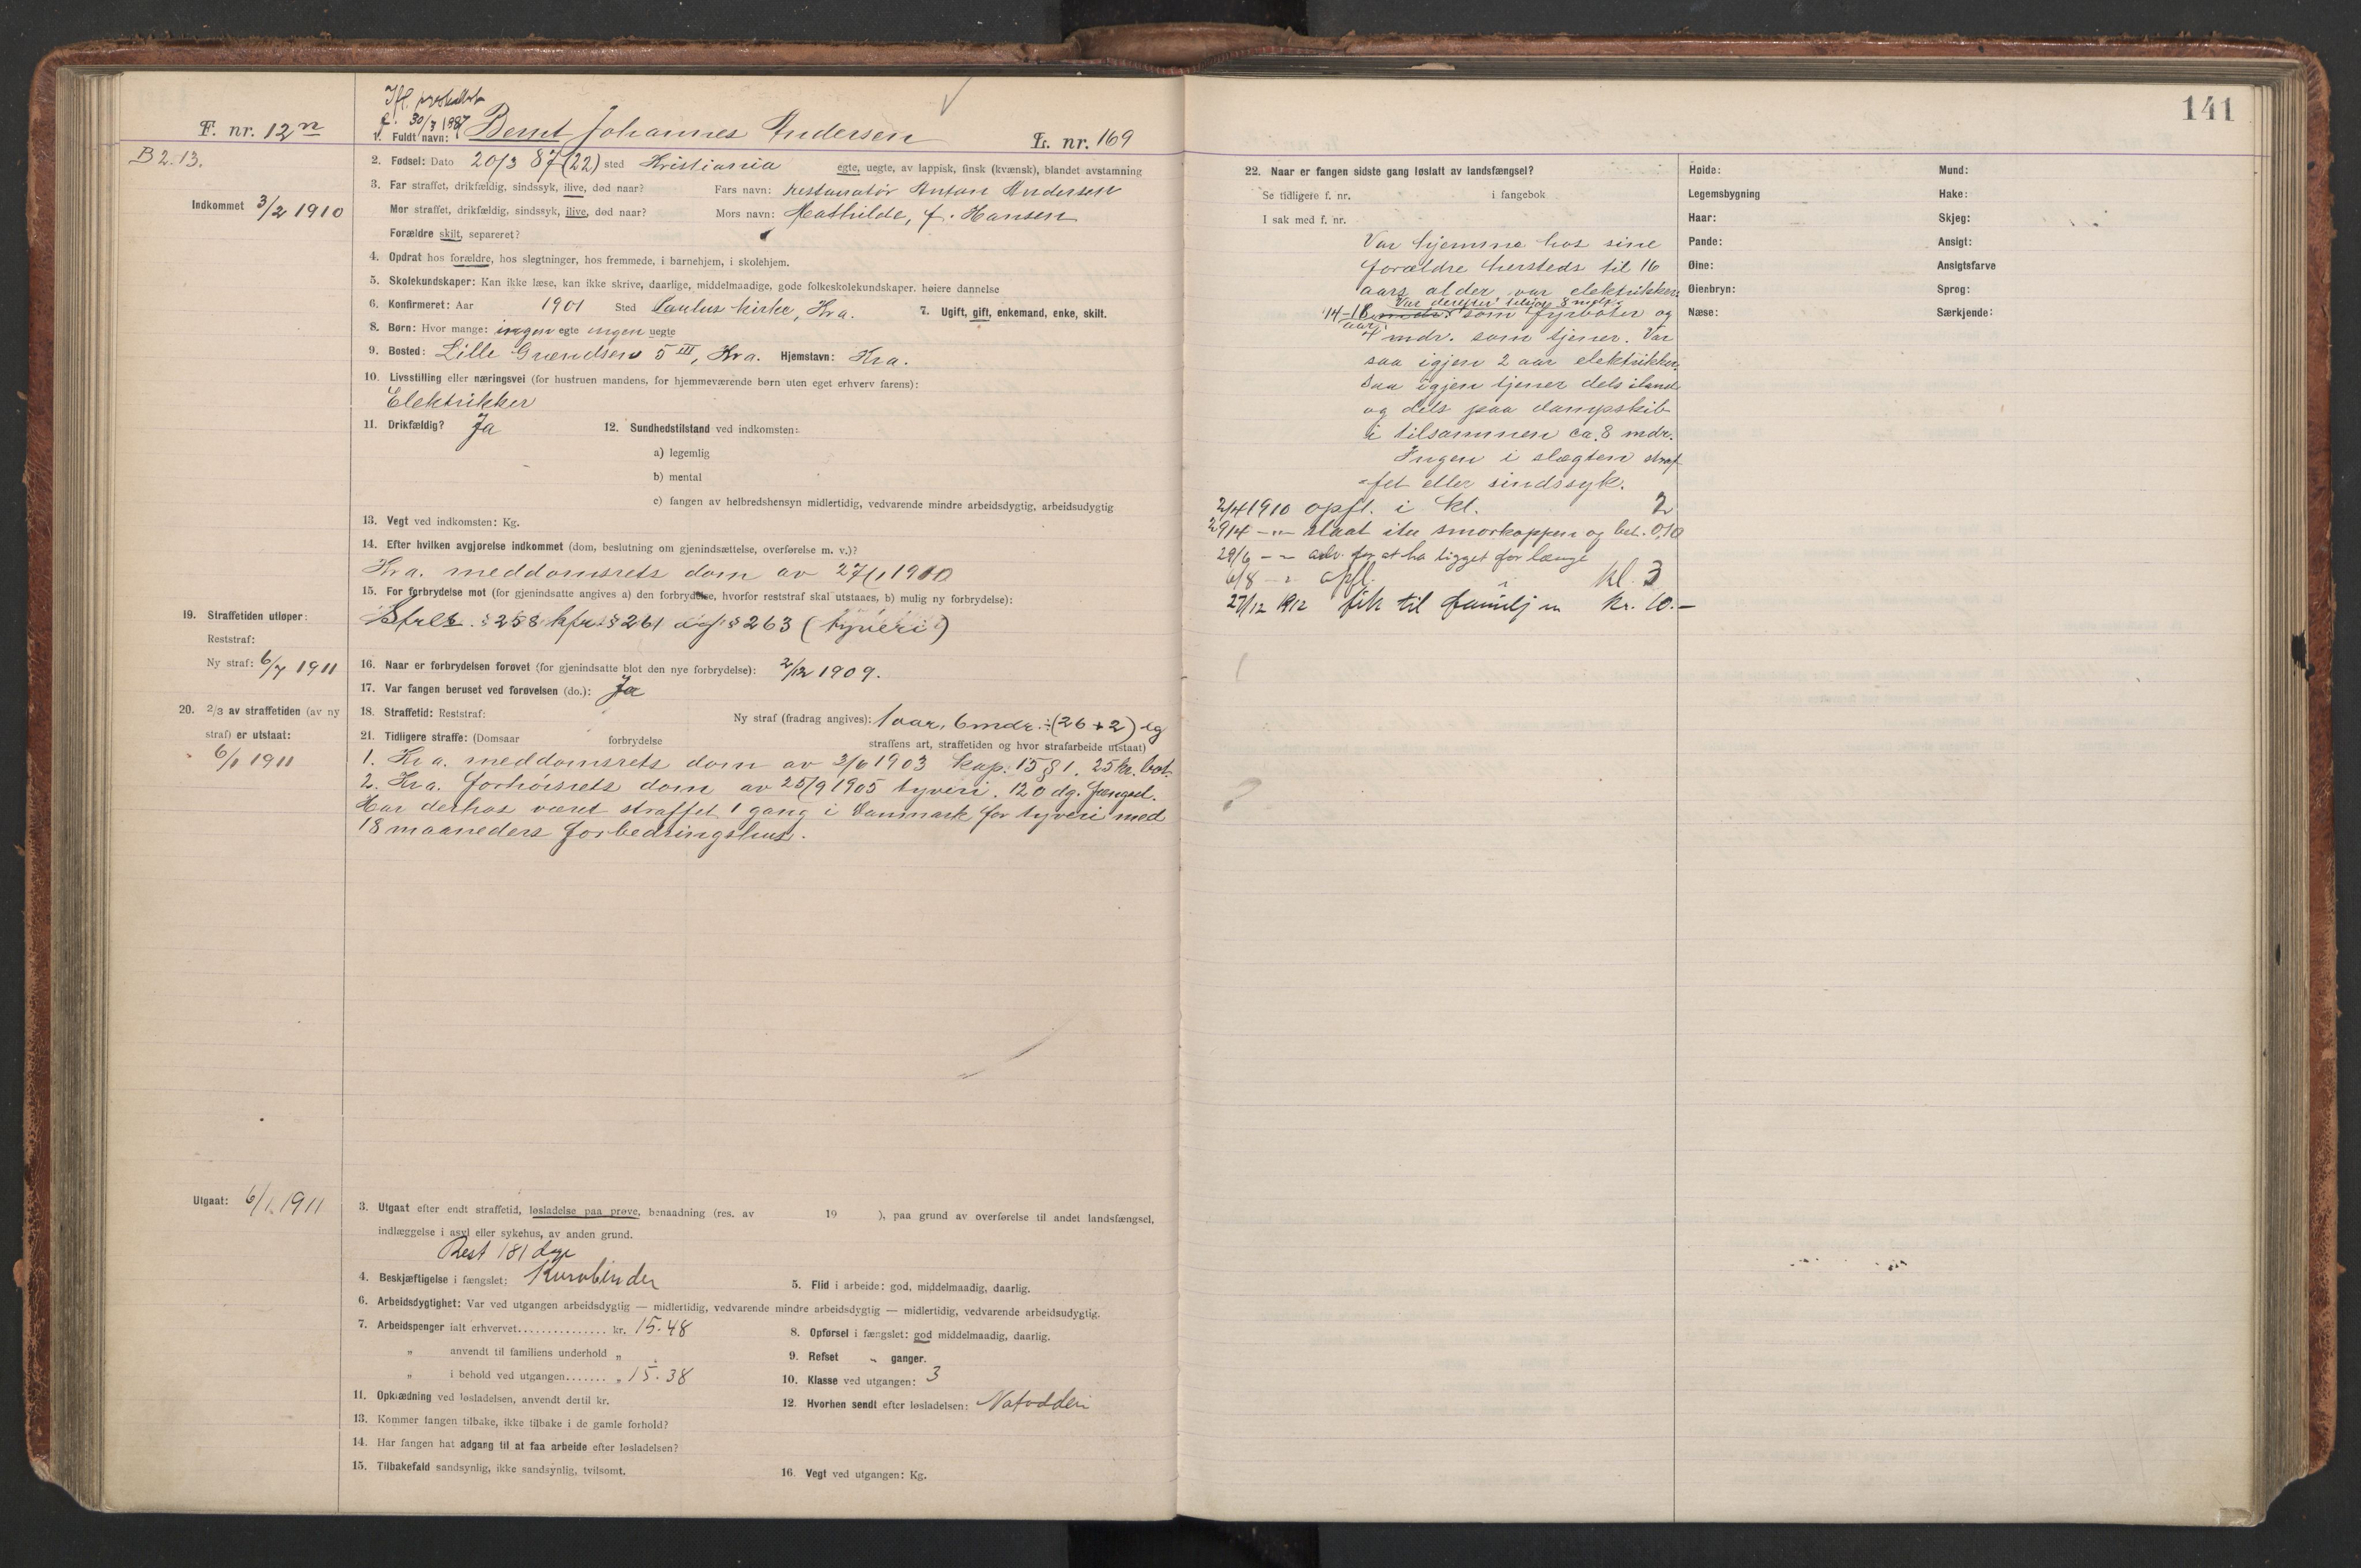 141
Ifl.
f. 30/3 1887
F. nr. 12n
1. Fuldt navn: Bernt Johannes Andersen
L. nr. 169
B 2.13.
2. Fødsel: Dato 20/3 87 (22) sted Kristiania egte, uegte, av lappisk, finsk (kvænsk), blandet avstamning
3. Far straffet, drikfældig, sindssyk, ilive, død naar? Fars navn: restauratør Anton Andersen
Indkommet 3/2 1910
Mor straffet, drikfældig, sindssyk, ilive, død naar? Mors navn: Mathilde, f. Hansen
Forældre skilt, separeret?
4. Opdrat hos forældre, hos slegtninger, hos fremmede, i barnehjem, i skolehjem.
5. Skolekundskaper: Kan ikke læse, kan ikke skrive, daarlige, middelmaadige, gode folkeskolekundskaper. høiere dannelse
6. Konfirmeret: Aar 1901 Sted Paulus kirke, Kra. 7. Ugift, gift, enkemand, enke, skilt.
8. Børn: Hvor mange: ingen egte ingen uegte
9. Bosted: Lille Grændsen 5 III, Kra. Hjemstavn: Kra.
10. Livsstilling eller næringsvei (for hustruen mandens, for hjemmeværende børn uten eget erhverv farens):
Elektrikker
11. Drikfældig? Ja 12. Sundhedstilstand ved indkomsten:
a) legemlig
b) mental
c) fangen av helbredshensyn midlertidig, vedvarende mindre arbeidsdygtig, arbeidsudygtig
13. Vegt ved indkomsten: Kg.
14. Efter hvilken avgjørelse indkommet (dom, beslutning om gjenindsættelse, overførelse m. v.)?
Kra. meddomsrets dom av 27/1 1910
15. For forbrydelse mot (for gjenindsatte angives a) den forbrydelse, hvorfor reststraf skal utstaaes, b) mulig ny forbrydelse):
Strl. § 258 kfr. § 261 og § 263 (tyveri)
19. Straffetiden utløper:
Reststraf:
Ny straf: 6/7 1911
16. Naar er forbrydelsen forøvet (for gjenindsatte blot den nye forbrydelse): 2/12 1909.
17. Var fangen beruset ved forøvelsen (do.): Ja
20. 2/3 av straffetiden (av ny straf) er utstaat:
6/1 1911
18. Straffetid: Reststraf: Ny straf (fradrag angives): 1 aar, 6 mdr. ÷ (26 + 2) dg
21. Tidligere straffe: (Domsaar forbrydelse straffens art, straffetiden og hvor strafarbeide utstaat)
1. Kra. meddomsrets dom av 2/6 1903 kap. 15 § 1. 25 kr. bot.
2. Kra. forhørsrets dom av 25/9 1905 tyveri. 120 dg. fængsel.
Har derhos været straffet 1 gang i Danmark for tyveri med
18 maaneders forbedringshus.
Utgaat: 6/1. 1911
3. Utgaat efter endt straffetid, løsladelse paa prøve, benaadning (res. av 19 ), paa grund av overførelse til andet landsfængsel,
indlæggelse i asyl eller sykehus, av anden grund.
Rest 181 dage
4. Beskjæftigelse i fængslet: Kurvbinder 5. Flid i arbeide: god, middelmaadig, daarlig.
6. Arbeidsdygtighet: Var ved utgangen arbeidsdygtig — midlertidig, vedvarende mindre arbeidsdygtig — midlertidig, vedvarende arbeidsudygtig.
7. Arbeidspenger ialt erhvervet............... kr. 15.48 8. Opførsel i fængslet: god middelmaadig, daarlig.
„ anvendt til familiens underhold „ 9. Refset „ ganger.
„ i behold ved utgangen....... „ 15.38 10. Klasse ved utgangen: 3
11. Opklædning ved løsladelsen, anvendt dertil kr. 12. Hvorhen sendt efter løsladelsen: Notodden
13. Kommer fangen tilbake, ikke tilbake i de gamle forhold?
14. Har fangen hat adgang til at faa arbeide efter løsladelsen?
15. Tilbakefald sandsynlig, ikke sandsynlig, tvilsomt. 16. Vegt ved utgangen: Kg.
22. Naar er fangen sidste gang løslatt av landsfængsel?
Se tidligere f. nr. i fangebok
I sak med f. nr.
Var hjemme hos sine
forældre hersteds til 16
aars alder var elektrikker
14-16 aar. Var derefter tilsjøs 8 mdr.
mdr. som fyrbøter og
4 mdr. som tjener. Var
saa igjen 2 aar elektrikker
Saa igjen tjener dels iland
og dels paa dampskib
i tilsammen ca. 8 mdr.
Ingen i slægten straf-
fet eller sindssyk.
2/4 1910 opfl. i kl. 2
29/4 - " - slaat itu smørkoppen og bet. 0,10
29/6 - " - adv. for at ha ligget for længe
6/8 - " - opfl. " kl. 3
27/12 1912 fik til familjen kr. 10.—
Høide: Mund:
Legemsbygning Hake:
Haar: Skjeg:
Pande: Ansigt:
Øine: Ansigtsfarve
Øienbryn: Sprog:
Næse: Særkjende: